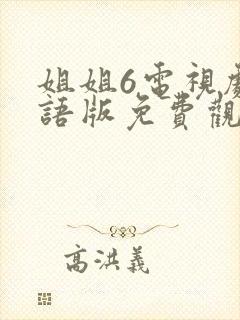 姐姐6電視劇
語版免費觀
高洪義